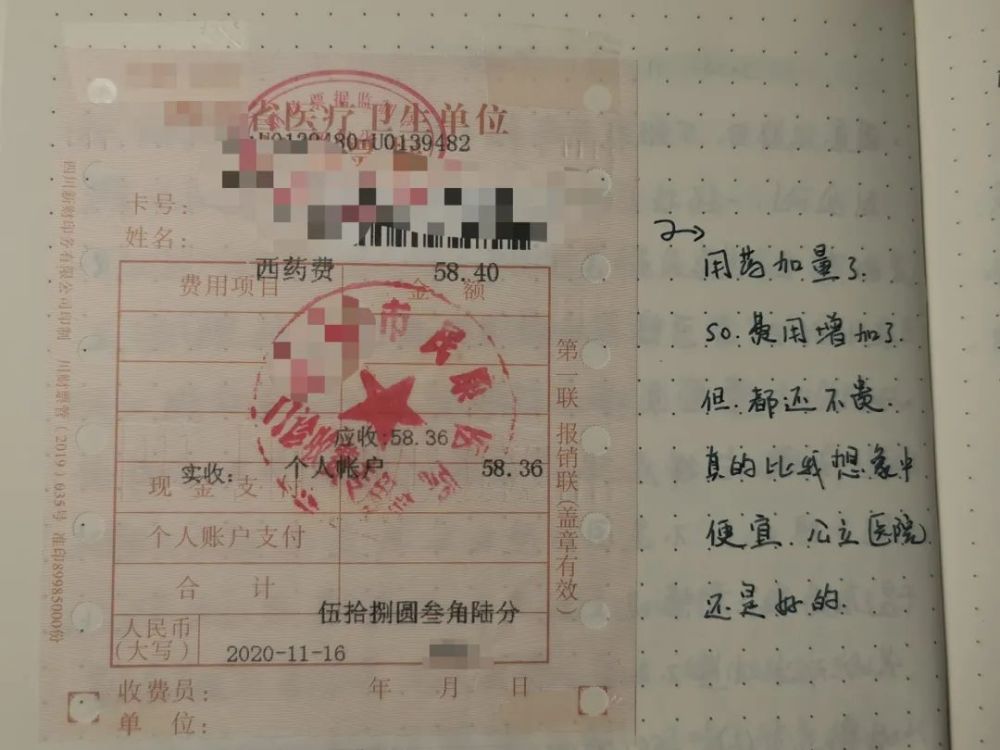 票据监制
省医疗卫生单位
U0139482
卡号:
姓名:
西药费 58.40
费用项目 金额
市
民
应收:58.36
实收: 个人帐户 58.36
现金支付
个人账户支付
合计
伍拾捌圆叁角陆分
人民币
(大写)
2020-11-16
收费员: 年 月 日
单位:
第一联 报销联(盖章有效)
四川新财印务有限公司印制 川财票管(2019)035号 准印8998500份
用药加量了.
so.费用增加了.
但.都还不贵.
真的比我想象中
便宜.公立医院
还是好的.